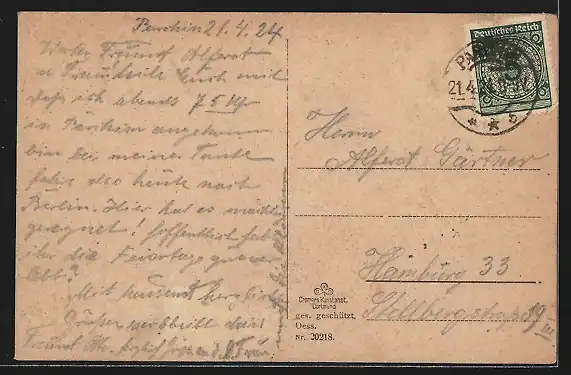 Parchim 21.4.24
Werter Freund Alfred
u Familie Euch mit
daß ich abends 7 5 Uhr
in Parchim angekom
bin bei meiner Tante
fahre also heute nach
Berlin. Hier hat es mächtig
geregnet! Hoffentlich hab
ihr die Feiertage gut ver
lebt?
Mit tausend herzlich
Grüßen verbleibt dein
Freund Otto
Deutsches Reich
5
21.4
* * b
Herrn
Alfred Gärtner
Hamburg 33
Stellbergstraße 19 III
Cramers Kunstanst.
Dortmund
ges. geschützt.
Dess.
Nr. 20218.